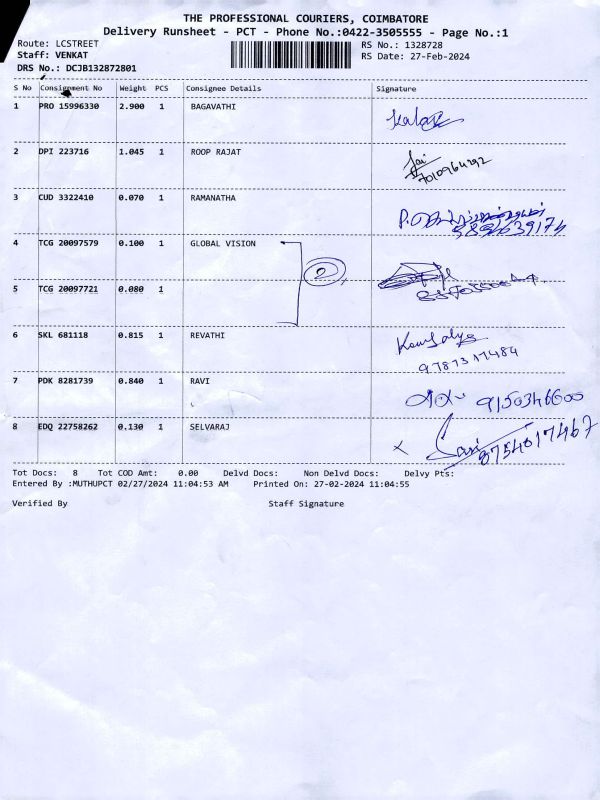 THE PROFESSIONAL COURIERS, COIMBATORE
Delivery Runsheet - PCT - Phone No.:0422-3505555 - Page No.:1
Route: LCSTREET RS No.: 1328728
Staff: VENKAT RS Date: 27-Feb-2024
DRS No.: DCJB132872801
S No Consignment No Weight PCS Consignee Details Signature
1 PRO 15996330 2.900 1 BAGAVATHI
2 DPI 223716 1.045 1 ROOP RAJAT
Jai
7010964292
3 CUD 3322410 0.070 1 RAMANATHA
4 TCG 20097579 0.100 1 GLOBAL VISION
2
5 TCG 20097721 0.080 1
6 SKL 681118 0.815 1 REVATHI
9787317484
7 PDK 8281739 0.840 1 RAVI
9150346600
8 EDQ 22758262 0.130 1 SELVARAJ
x
8754017467
Tot Docs: 8 Tot COD Amt: 0.00 Delvd Docs: Non Delvd Docs: Delvy Pts:
Entered By :MUTHUPCT 02/27/2024 11:04:53 AM Printed On: 27-02-2024 11:04:55
Verified By Staff Signature